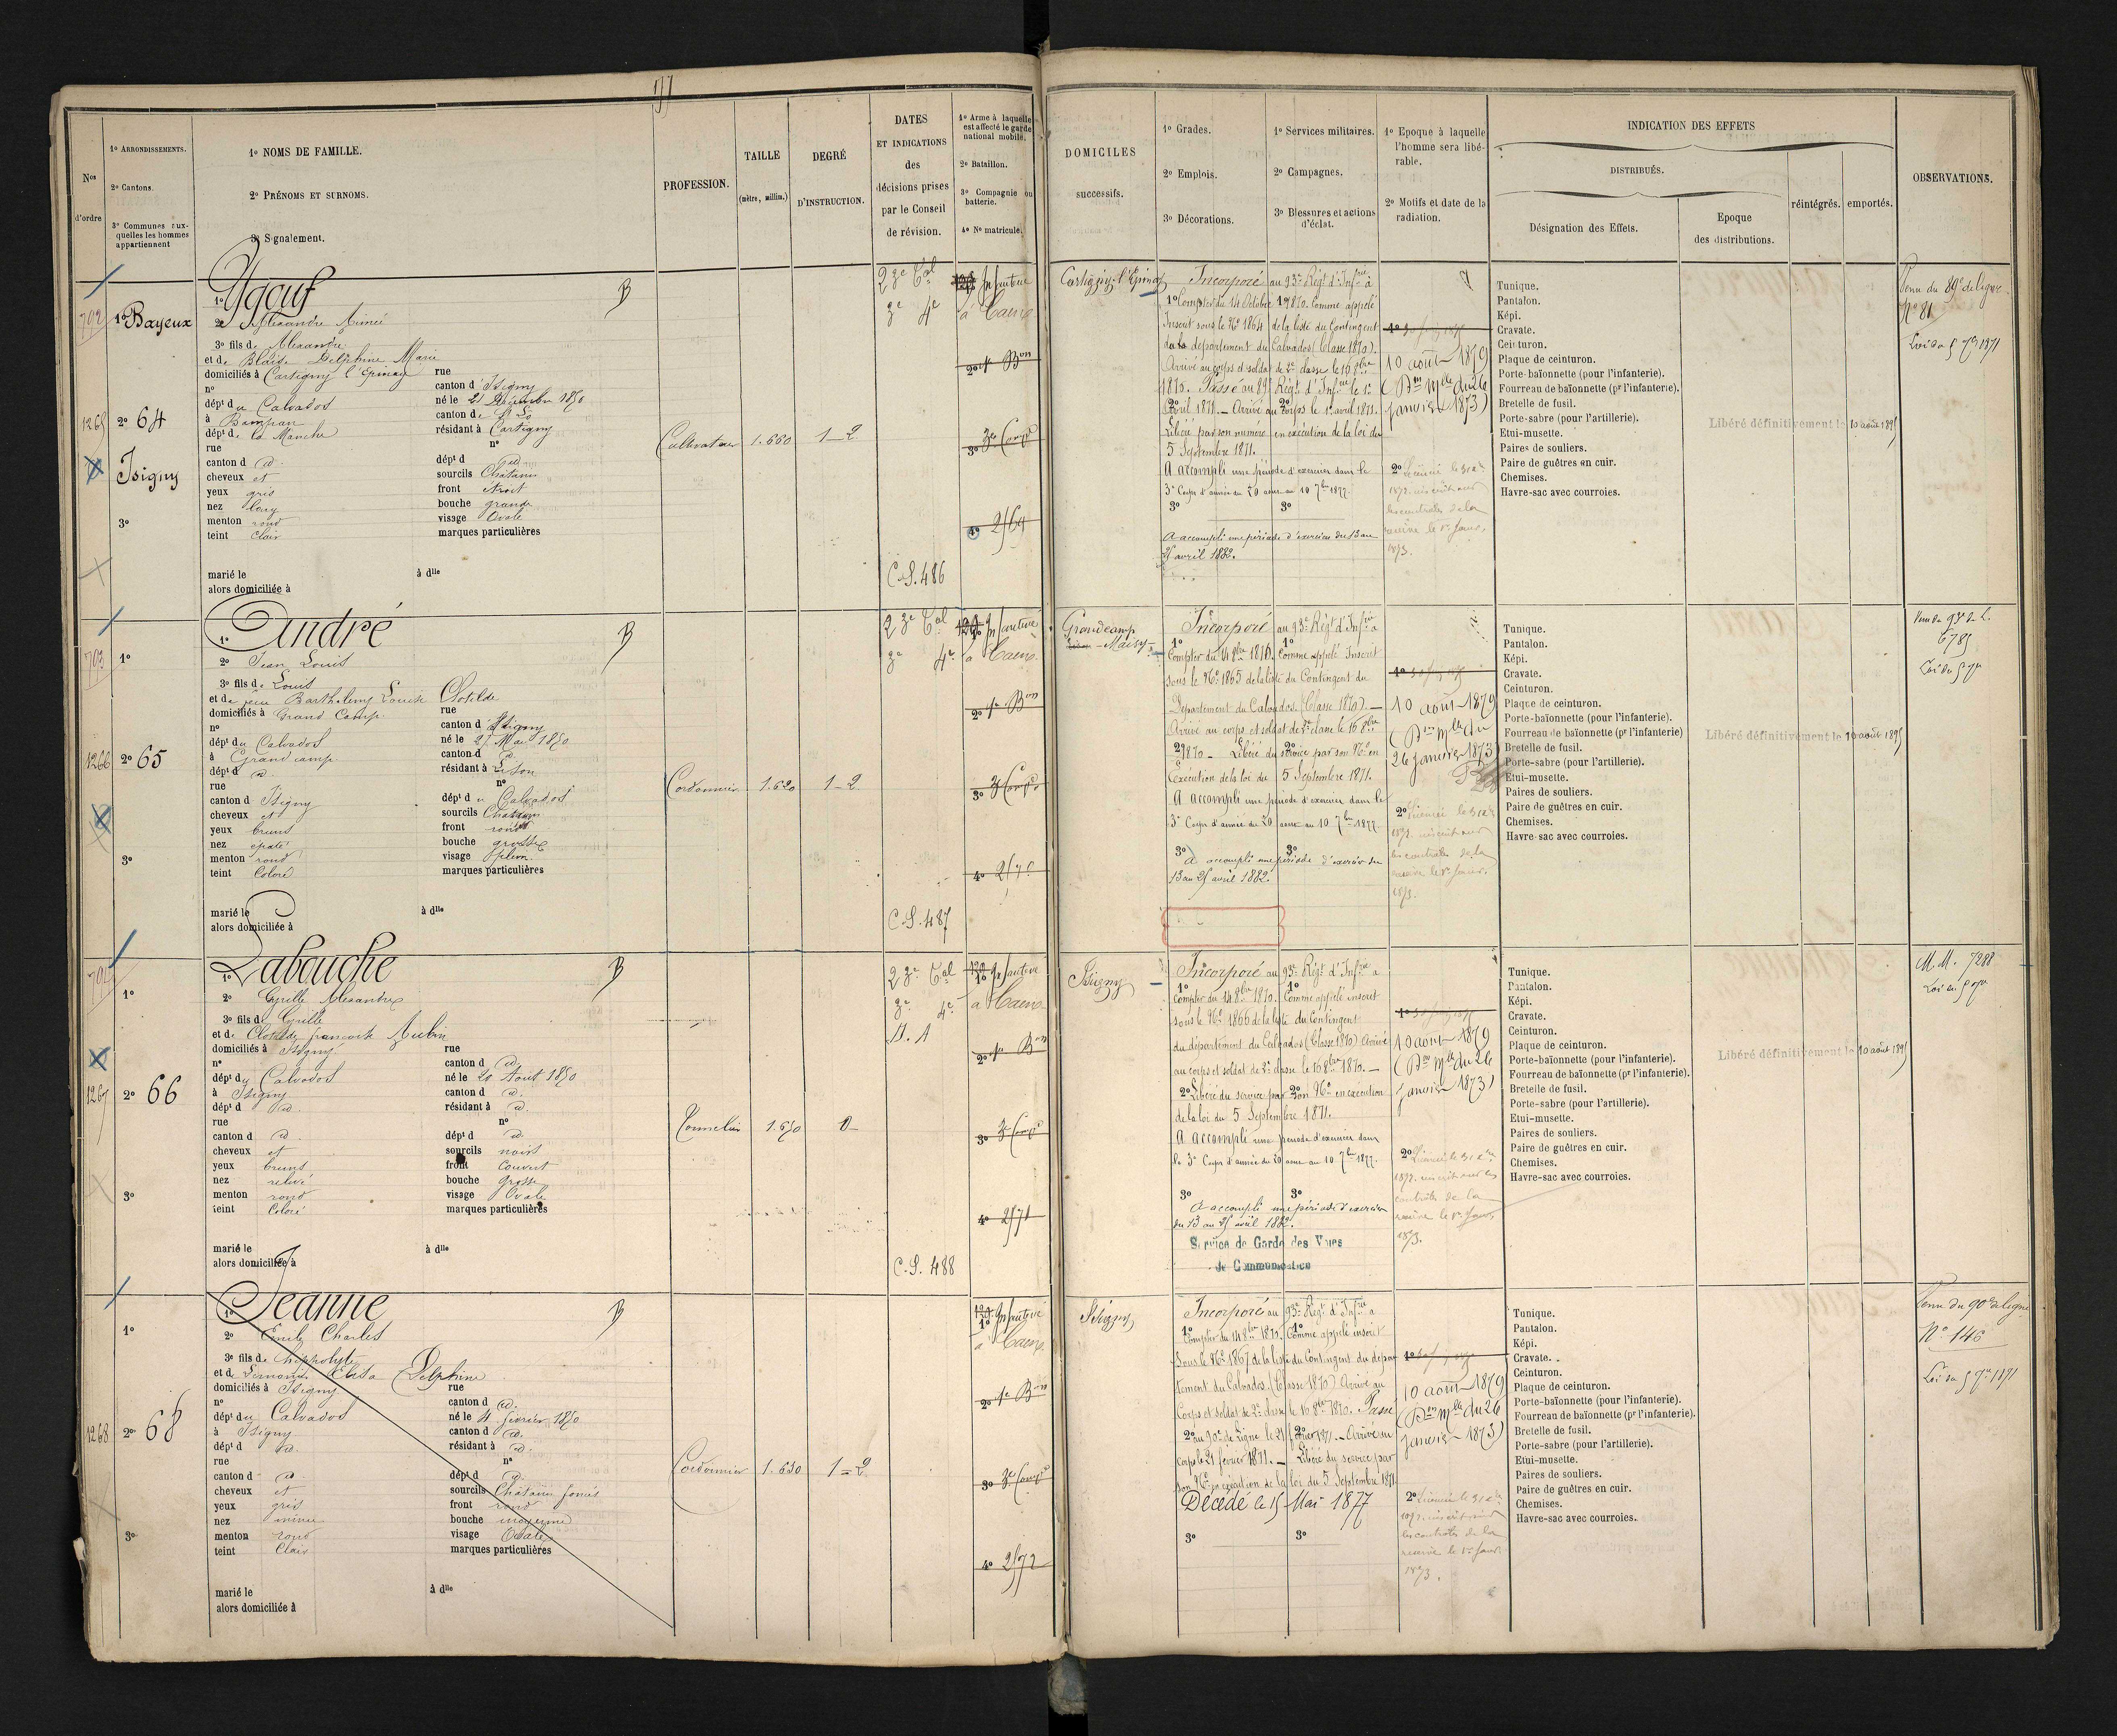 1º ARRONDISSEMENTS.
2º Cantons.
3º Communes aux-
quelles les hommes
appartiennent
Nos
d'ordre
1º NOMS DE FAMILLE.
2º PRÉNOMS ET SURNOMS.
3º Signalement.
PROFESSION.
TAILLE
(mètre, millim.)
DEGRÉ
D'INSTRUCTION.
DATES
ET INDICATIONS
des
décisions prises
par le Conseil
de révision.
1º Arme à laquelle
est affecté le garde
national mobile.
2º Bataillon.
3º Compagnie ou
batterie.
4º Nº matricule.
DOMICILES
successifs.
1º Grades.
2º Emplois.
3º Décorations.
1º Services militaires.
2º Campagnes.
3º Blessures et actions
d'éclat.
1º Epoque à laquelle
l'homme sera libé-
rable.
2º Motifs et date de la
radiation.
INDICATION DES EFFETS
DISTRIBUÉS.
Désignation des Effets.
Epoque
des distributions.
réintégrés.
emportés.
OBSERVATIONS.
792
1265
1º Bayeux
2º 64
Isigny
3º
1º Ygouf
2º Alexandre Aimé
3º fils de Alexandre
et de Blaise Delphine Marie
domiciliés à Cartigny l'Epinay rue
nº canton d'Isigny
dépt du Calvados né le 21 1850
à canton de St Lô
dépt de la Manche résidant à Cartigny
rue nº
canton d id. dépt d id.
cheveux et sourcils Châtains
yeux gris front étroit
nez long bouche grande
menton rond visage Ovale
teint Clair marques particulières
marié le à dlle
alors domiciliée à
B
Cultivateur
1.660
1-2
2 3e Cal
3e 4e
C.S. 486
Infanterie
à Caen
2º 1er Bon
3º 3e Compie
4º 2569
Cartigny-l'Epinay
Incorporé au 93e Régt d'Infrie à
1º Compter du 14 Octobre 1870. Comme appelé
Inscrit sous le Nº 1864 de la liste du Contingent
du département du Calvados (Classe 1870).
Arrivé au corps et soldat de 2e classe le 16 8bre
1870. Passé au 89e Régt d'Infrie le 1er
Avril 1871. – Arrivé au Corps le 1er avril 1871.
Libéré par son numéro en exécution de la loi du
5 Septembre 1871.
A accompli une période d'exercices dans le
3e Corps d'armée du 20 août au 10 7bre 1877.
3º 3º
A accompli une période d'exercices du 13 au
25 avril 1882.
10 août 1879
(Don Mlle du 26
janvier 1873)
Tunique.
Pantalon.
Képi.
Cravate.
Ceinturon.
Plaque de ceinturon.
Porte-baïonnette (pour l'infanterie).
Fourreau de baïonnette (pr l'infanterie).
Bretelle de fusil.
Porte-sabre (pour l'artillerie).
Etui-musette.
Paires de souliers.
Paire de guêtres en cuir.
Chemises.
Havre-sac avec courroies.
Libéré définitivement le 10 août 1895
Venu du 89e de ligne
Nº 81
Loi du 5 7bre 1871
703
1266
1º
2º 65
3º
1º André
2º Jean Louis
3º fils de Louis
et de feue Barthelemy Louise Clotilde
domiciliés à Grand Camp rue
nº canton d'Isigny
dépt du Calvados né le 21 Mai 1850
à Grand camp canton d
dépt d id résidant à Lison
rue nº
canton d Isigny dépt du Calvados
cheveux et sourcils Châtains
yeux bruns front rond
nez épaté bouche grosse
menton rond visage plein
teint Coloré marques particulières
marié le à dlle
alors domiciliée à
B
Cordonnier
1.620
1-2
2 3e Cal
3e 4e
C.S. 487
Infanterie
à Caen
2º 1er Bon
3º 3e Compie
4º 2570
Grandcamp
Maisy
Incorporé au 93e Régt d'Infrie à
1º 1º
Compter du 14 8bre 1870. Comme appelé Inscrit
sous le Nº 1865 de la liste du Contingent du
Département du Calvados. (Classe 1870). –
Arrivé au corps et soldat de 2e classe le 16 8bre
1870 – Libéré du service par son Nº en
exécution de la loi du 5 Septembre 1871.
A accompli une période d'exercices dans le
3e Corps d'armée du 20 août au 10 7bre 1877.
3º 3º
A accompli une période d'exercices du
13 au 25 avril 1882.
10 août 1879
(Don Mlle du
26 janvier 1873)
Tunique.
Pantalon.
Képi.
Cravate.
Ceinturon.
Plaque de ceinturon.
Porte-baïonnette (pour l'infanterie).
Fourreau de baïonnette (pr l'infanterie)
Bretelle de fusil.
Porte-sabre (pour l'artillerie).
Etui-musette.
Paires de souliers.
Paire de guêtres en cuir.
Chemises.
Havre-sac avec courroies.
Libéré définitivement le 10 août 1895
Venu du 93e de l.
6785
Loi du 5 7bre
704
1267
1º
2º 66
3º
1º Labouche
2º Cyrille Alexandre
3º fils de Cyrille
et de Clotilde françoise Aubin
domiciliés à Isigny rue
nº canton d id.
dépt du Calvados né le 20 Août 1850
à Isigny canton d id.
dépt d id. résidant à id.
rue nº
canton d id. dépt d id.
cheveux et sourcils noirs
yeux bruns front Couvert
nez relevé bouche grosse
menton rond visage Ovale
teint Coloré marques particulières
marié le à dlle
alors domiciliée à
B
Tonnelier
1.650
0
2 3e Cal
3e 4e
C.S. 488
Infanterie
à Caen
2º 1er Bon
3º 3e Compie
4º 2571
Isigny
Incorporé au 93e Régt d'Infrie à
1º 1º
Compter du 14 8bre 1870. Comme appelé inscrit
sous le Nº 1866 de la liste du Contingent
du département du Calvados (Classe 1870) Arrivé
au corps et soldat de 2e classe le 16 8bre 1870. –
2º Libéré du service par son Nº en exécution
de la loi du 5 Septembre 1871.
A accompli une période d'exercices dans
le 3e Corps d'armée du 20 août au 10 7bre 1877.
3º 3º
A accompli une période d'exercices
du 13 au 25 avril 1882.
Service de Garde des Voies
de Communication
10 août 1879
(Don Mlle du 26
janvier 1873)
Tunique.
Pantalon.
Képi.
Cravate.
Ceinturon.
Plaque de ceinturon.
Porte-baïonnette (pour l'infanterie).
Fourreau de baïonnette (pr l'infanterie).
Bretelle de fusil.
Porte-sabre (pour l'artillerie).
Etui-musette.
Paires de souliers.
Paire de guêtres en cuir.
Chemises.
Havre-sac avec courroies.
Libéré définitivement le 10 août 1895
M.M. 7288
Loi du 5 7bre
1268
1º
2º 68
3º
1º Jeanne
2º Emile Charles
3º fils de hippolyte
et de Lemoine Elisa Delphine
domiciliés à Isigny rue
nº canton d id.
dépt du Calvados né le 4 février 1850
à Isigny canton d id.
dépt d id. résidant à id.
rue nº
canton d id dépt d id.
cheveux et sourcils Châtains foncés
yeux gris front rond
nez bouche moyenne
menton rond visage Ovale
teint Clair marques particulières
marié le à dlle
alors domiciliée à
B
Cordonnier
1.630
1=2
Infanterie
à Caen
2º 1er Bon
3º 3e Compie
4º 2572
Isigny
Incorporé au 93e Régt d'Infrie à
1º 1º
Compter du 14 8bre 1870. Comme appelé inscrit
Sous le Nº 1867 de la liste du Contingent du dépar-
tement du Calvados. (Classe 1870) Arrivé au
Corps et soldat de 2e classe le 16 8bre 1870. Passé
2º au 90e de Ligne le 21 février 1871. – Arrivé au
corps le 21 février 1871. – Libéré du service par
son Nº en exécution de la loi du 5 Septembre 1871
Décédé le 15 Mai 1877
3º 3º
10 août 1879
(Don Mlle du 26
janvier 1873)
Tunique.
Pantalon.
Képi.
Cravate.
Ceinturon.
Plaque de ceinturon.
Porte-baïonnette (pour l'infanterie).
Fourreau de baïonnette (pr l'infanterie).
Bretelle de fusil.
Porte-sabre (pour l'artillerie).
Etui-musette.
Paires de souliers.
Paire de guêtres en cuir.
Chemises.
Havre-sac avec courroies.
Venu du 90e de ligne
Nº 146
Loi du 5 7bre 1871